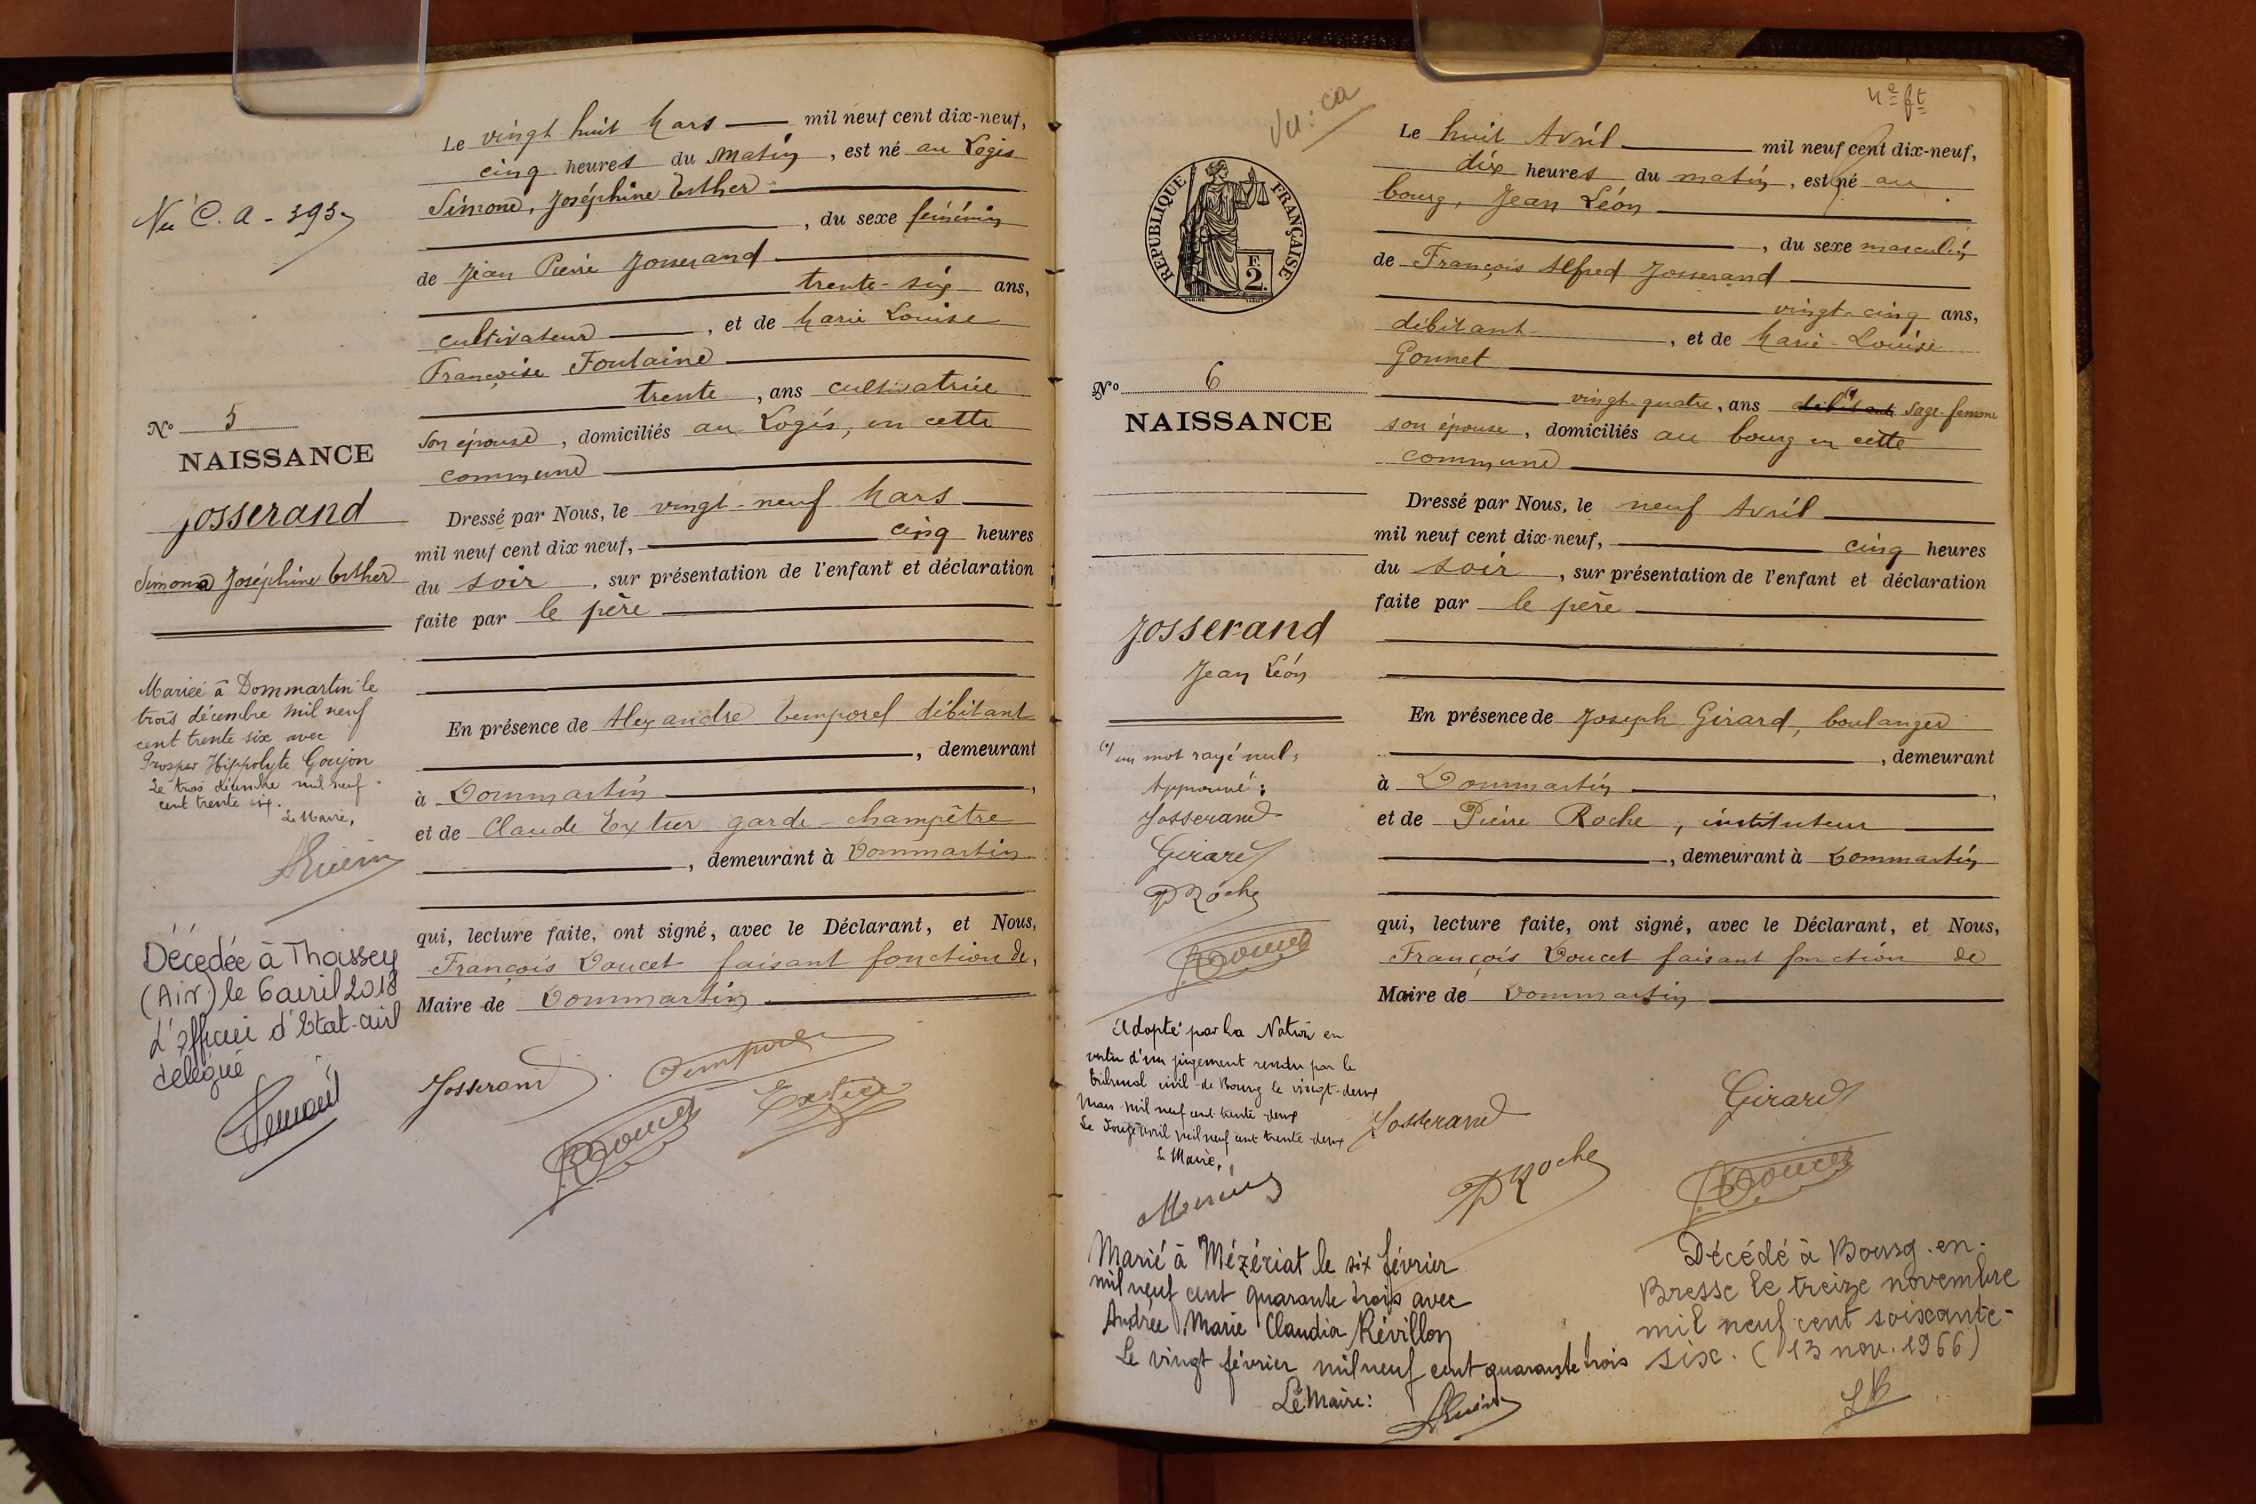 Vu C. A - 393
N° 5
NAISSANCE
Josserand
Simone Joséphine Esther
Mariée à Dommartin le
trois décembre mil neuf
cent trente six avec
Prosper Hippolyte Goujon
Le trois décembre mil neuf
cent trente six.
Le Maire,
Décédée à Thoissey
(Ain) le 6 avril 2018
L'officier d'Etat-civil
délégué
Le vingt huit Mars mil neuf cent dix-neuf,
cinq heures du matin, est né au Logis
Simone, Joséphine Esther
, du sexe féminin
de Jean Pierre Josserand
trente-six ans,
cultivateur, et de Marie Louise
Françoise Foulaine
trente, ans cultivatrice
son épouse, domiciliés au Logis, en cette
commune
Dressé par Nous, le vingt-neuf Mars
mil neuf cent dix neuf, cinq heures
du soir, sur présentation de l'enfant et déclaration
faite par le père
En présence de Alexandre Temporel débitant
, demeurant
à Dommartin,
et de Claude Extier garde-champêtre
, demeurant à Dommartin
qui, lecture faite, ont signé, avec le Déclarant, et Nous,
François Doucet faisant fonction de,
Maire de Dommartin
Josserand Temporel
Doucet Extier
Vu: ca
4e ft
RÉPUBLIQUE FRANÇAISE
F.
2.
N° 6
NAISSANCE
Josserand
Jean Léon
(1) un mot rayé nul,
Approuvé:
Josserand
Girard
P Roche
Doucet
Adopté par la Nation en
vertu d'un jugement rendu par le
tribunal civil de Bourg le vingt-deux
Mars mil neuf cent trente deux
Le douze avril mil neuf cent trente deux
Le Maire,
Marié à Mézériat le six février
mil neuf cent quarante trois avec
Andrée Marie Claudia Révillon
Le vingt février mil neuf cent quarante trois
Le Maire:
Le huit Avril mil neuf cent dix-neuf,
dix heures du matin, est né au
bourg, Jean Léon
, du sexe masculin
de François Alfred Josserand
vingt-cinq ans,
débitant, et de Marie-Louise
Gonnet
vingt-quatre, ans débitante (1) sage-femme
son épouse, domiciliés au bourg en cette
commune
Dressé par Nous, le neuf Avril
mil neuf cent dix-neuf, cinq heures
du soir, sur présentation de l'enfant et déclaration
faite par le père
En présence de Joseph Girard, boulanger
, demeurant
à Dommartin,
et de Pierre Roche, instituteur
, demeurant à Dommartin
qui, lecture faite, ont signé, avec le Déclarant, et Nous,
François Doucet faisant fonction de
Maire de Dommartin
Josserand Girard
P Roche Doucet
Décédé à Bourg-en-
Bresse le treize novembre
mil neuf cent soixante-
six. (13 nov. 1966)